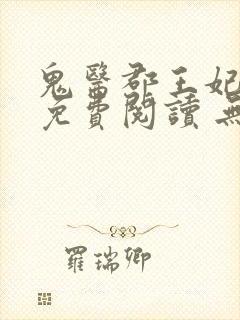 鬼醫郡王妃
免費閱讀 無
羅瑞卿